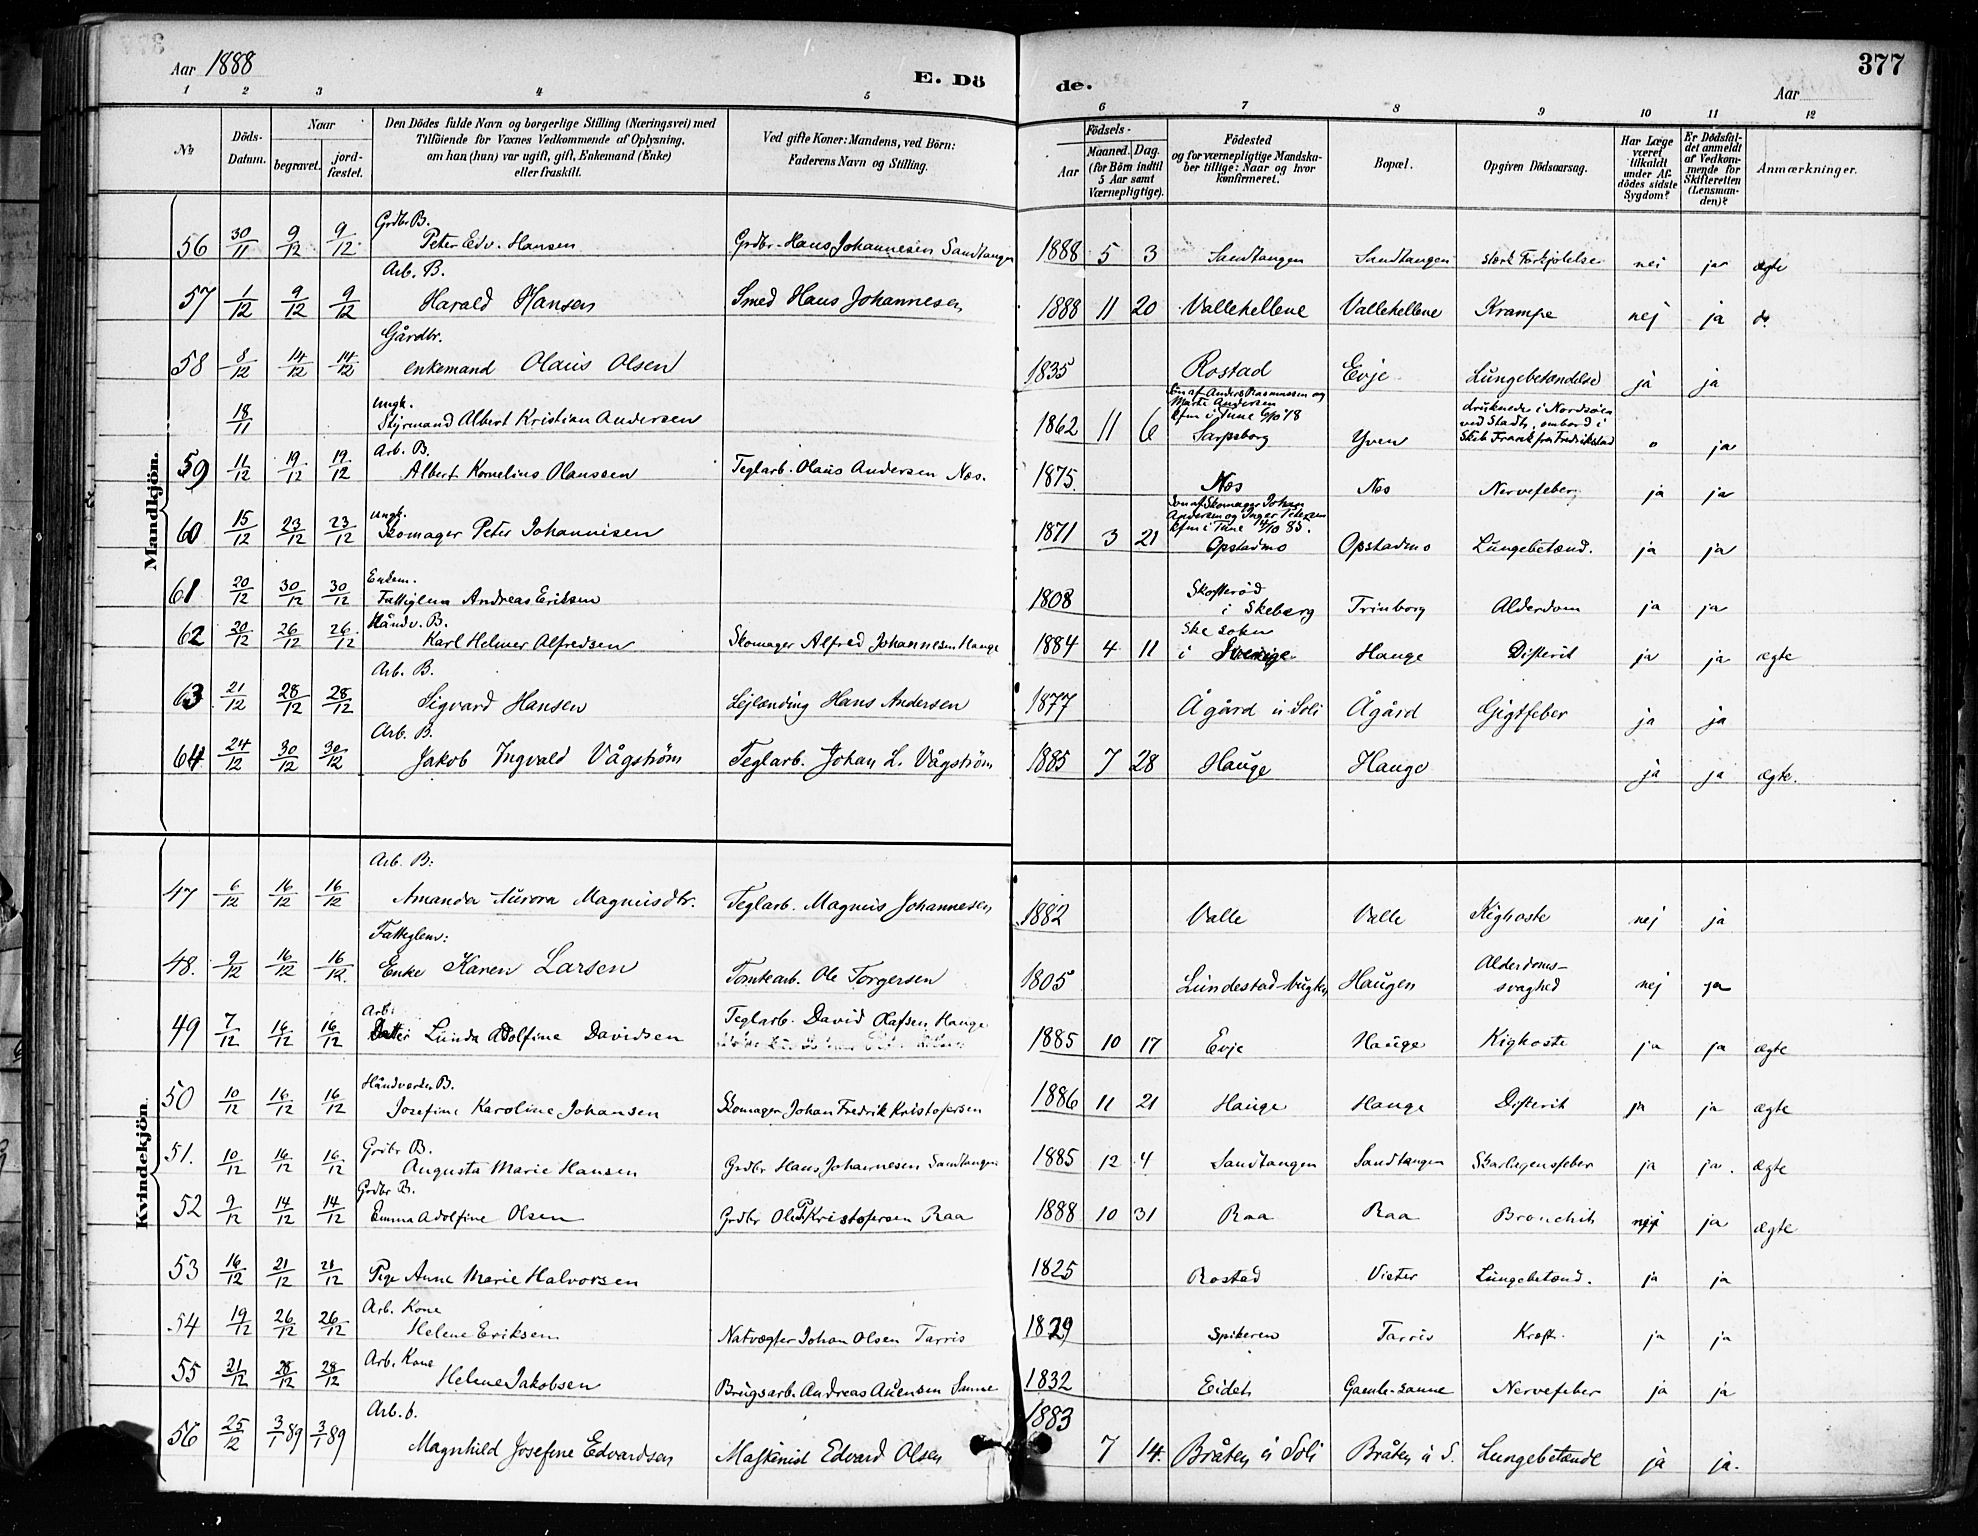 Aar 1888
E. Dö
de.
377
Aar
1 2 3 4 5 6 7 8 9 10 11 12
No
Döds-Datum.
Naar
begravet.
jord-fæstet.
Den Dödes fulde Navn og borgerlige Stilling (Næringsvei) med
Tilföiende for Voxnes Vedkommende af Oplysning,
om han (hun) var ugift, gift, Enkemand (Enke)
eller fraskilt.
Ved gifte Koner: Mandens, ved Börn:
Faderens Navn og Stilling.
Födsels-
Aar
Maaned. Dag.
(for Börn indtil
5 Aar samt
Værnepligtige).
Födested
og for værnepligtige Mandska-
ber tillige: Naar og hvor
konfirmeret.
Bopæl.
Opgiven Dödsaarsag.
Har Læge
været
tilkaldt
under Af-
dödes sidste
Sygdom?
Er Dödsfal-
det anmeldt
af Vedkom-
mende for
Skifteretten
(Lensman-
den)?
Anmærkninger.
Mandkjön.
Grdbr. B.
56 30/11 9/12 9/12 Peter Edv. Hansen Grdbr. Hans Johannesen Sandtangen 1888 5 3 Sandtangen Sandtangen stærk Forkjølelse nei ja ægte
Arb. B.
57 1/12 9/12 9/12 Harald Hansen Smed Hans Johannesen 1888 11 20 Vallehellene Vallehellene Krampe nej ja do.
Gårdbr.
58 8/12 14/12 14/12 enkemand Olaus Olsen 1835 Rostad Evje Lungebetændelse ja ja
ungk.
18/11 Styrmand Albert Kristian Andersen 1862 11 6 Søn af Anders Rasmussen og
Marte Andersen
kfm i Tune 6/10 78
Sarpsborg Yven druknede i Nordsøen
ved Stadt, ombord i
Skib Frank fra Fredrikstad " ja
Arb. B.
59 11/12 19/12 19/12 Albert Kornelius Olaussen Teglarb. Olaus Andersen Næs. 1875. Næs Næs Nervefeber ja ja
ungk.
60 15/12 23/12 23/12 Skomager Peter Johannisen 1871 3 21 Søn af Skomager Johan
Andersen og Inger Petersen
kfm i Tune 14/10 85.
Opstadmo Opstadmo Lungebetænd. ja ja
Enkem.
61 20/12 30/12 30/12 Fattiglem Andreas Eriksen 1808 Skofterød
i Skeberg Trinborg Alderdom ja ja
Håndv. B.
62 20/12 26/12 26/12 Karl Helmer Alfredsen Skomager Alfred Johannesen Hauge 1884 4 11 Ske sokn
i Sverige Hauge Difterit ja ja ægte
Arb. B.
63 21/12 28/12 28/12 Sigvard Hansen Lejlænding Hans Andersen 1877 Ågård u Soli Ågård Gigtfeber ja ja
Arb. B.
64 24/12 30/12 30/12 Jakob Ingvald Vågstrøm Teglarb. Johan L. Vågstrøm 1885 7 28 Hauge Hauge ja ja ægte.
Kvindekjön.
Arb. B:
47 6/12 16/12 16/12 Amanda Aurora Magnusdtr. Teglarb. Magnus Johannesen 1882 Valle Valle Kighoste nej ja
Fatteglem:
48. 9/12 16/12 16/12 Enke Karen Larsen Tomtearb. Ole Torgersen 1805 Lundestad-bugten Haugen Alderdoms-
svaghed nej ja
Arb:
49 7/12 16/12 16/12 Datter Lunda Adolfine Davidsen Teglarb. David Olafsen Hauge 1885 10 17 Evje Hauge Kighoste ja ja ægte
Håndværker B.
50 10/12 16/12 16/12 Josefine Karoline Johansen Skomager Johan Fredrik Kristofersen 1886 11 21 Hauge Hauge Difterit ja ja ægte
Grdbr B.
51. 10/12 16/12 16/12 Augusta Marie Hansen Grdbr Hans Johannesen Sandtangen 1885 12 4 Sandtangen Sandtangen Skarlagensfeber ja ja. ægte
Grdbr B.
52 9/12 14/12 14/12 Emma Adolfine Olsen Grdbr Ole P. Kristofersen Raa 1888 10 31 Raa Raa Bronchit nej ja ægte
53 16/12 21/12 21/12 Pige Anne Marie Halvorsen 1825 Rostad Vister Lungebetænd. ja ja
Arb. Kone
54 19/12 26/12 26/12 Helene Eriksen Natvægter Johan Olsen Tarris 1829 Spikeren Tarris Kræft. ja ja
Arb. Kone
55 21/12 28/12 28/12 Helene Jakobsen Brugsarb. Andreas Auensen Sanne 1832 Eidet Gamle-sanne Nervefeber ja ja
Arb. b.
56 25/12 3/1 89 3/1 89 Magnhild Josefine Edvardsen Maskinist Edvard Olsen 1883 7 14. Bråten u Soli Bråten u S. Lungebetænde ja ja.